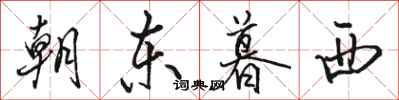 朝东暮西
词典网